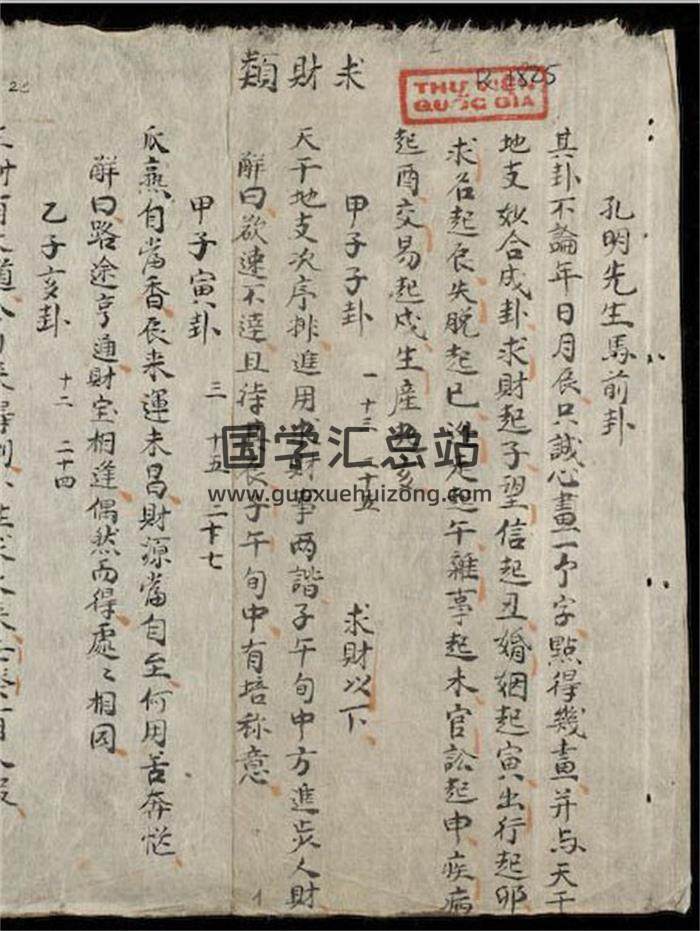 孔明先生馬前卦
其卦不論年日月辰只誠心畫一个字點得幾畫并与天干
地支妙合成卦求財起子望信起丑婚姻起寅出行起卯
求名起辰失脫起巳 起午雜事起未官訟起申疾病
起酉交易起戍生產 亥
求財類
甲子子卦 一 十三 二十五 求財以下
天干地支次序排進用 財事两諧子午旬中方進步人財
解曰欲速不達且待 辰子午旬中有培称意
甲子寅卦 三 十五 二十七
辰来運未昌財源當自至何用苦奔忙
解曰路途亨通財宝相逢偶然而得處〻相因
乙子亥卦 十二 二十四
THƯ VIỆN
QUỐC GIA
国学汇总站
www.guoxuehuizong.com